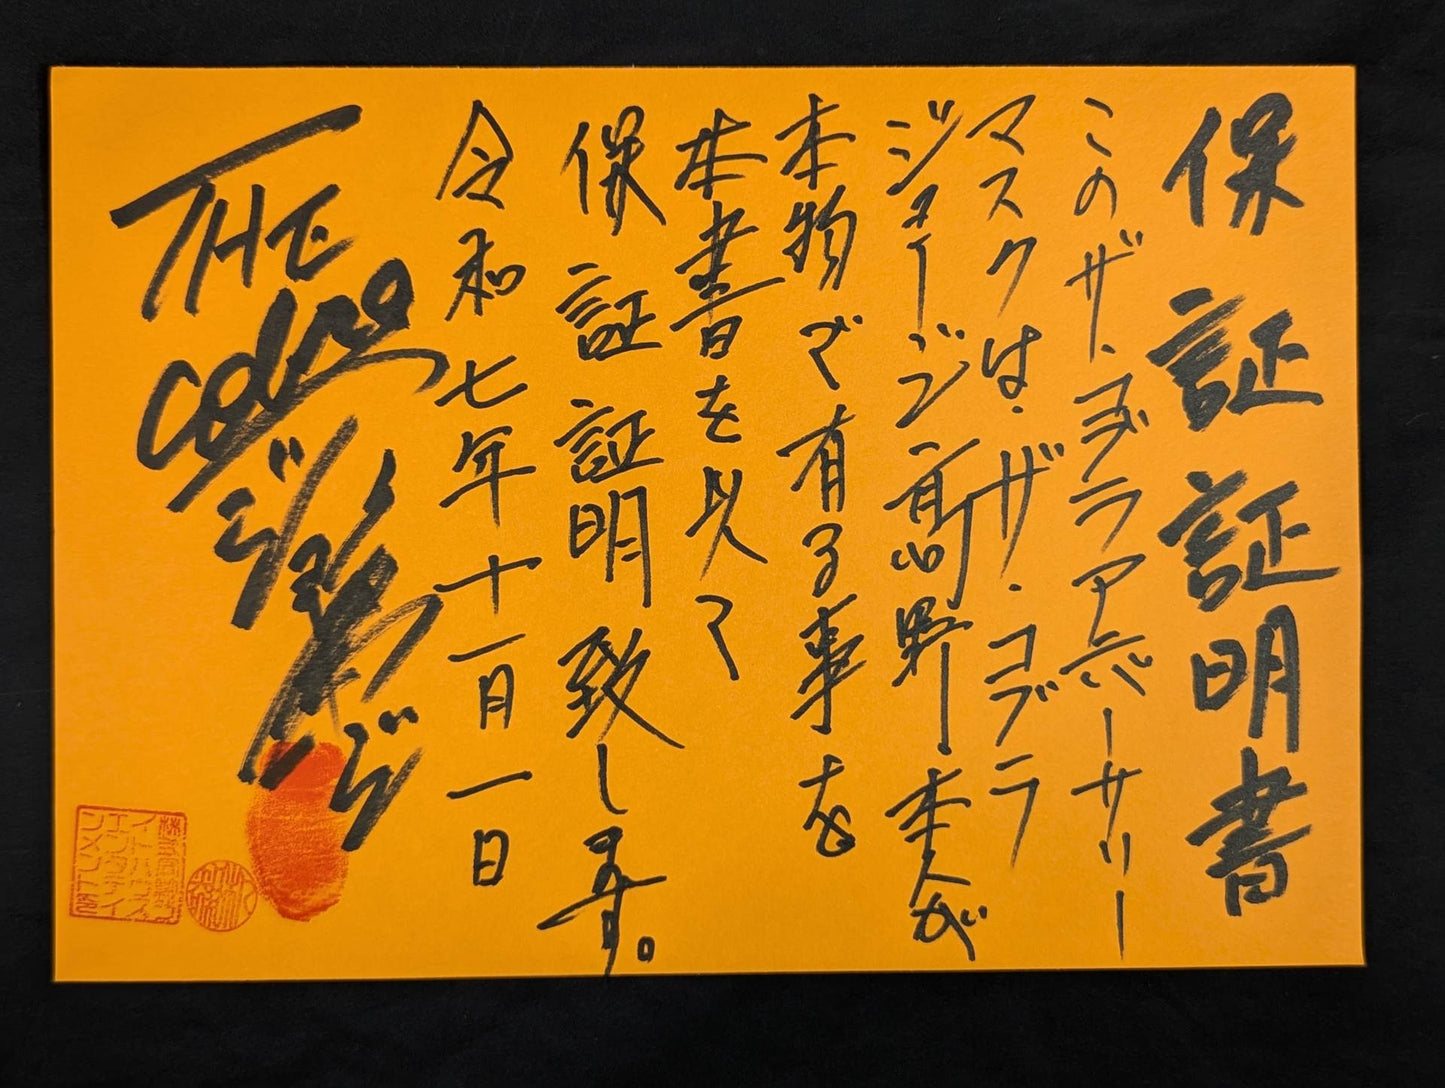 保証証明書
このザ・コブラアニバーサリー
マスクは、ザ・コブラ
ジョージ高野、本人が
本物で有る事を
本書を以て
保証証明致します。
令和七年十一月一日
THE
cobra
ジョージ